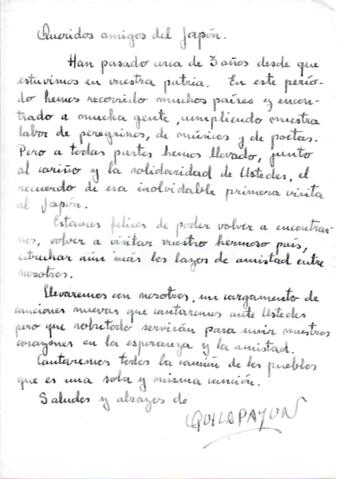 Queridos amigos del Japón.
Han pasado cerca de 3 años desde que
estuvimos en vuestra patria. En este perío-
do hemos recorrido muchos países y encon-
trado a mucha gente, cumpliendo nuestra
labor de peregrinos, de músicos y de poetas.
Pero a todas partes hemos llevado, junto
al cariño y la solidaridad de Ustedes, el
recuerdo de esa inolvidable primera visita
al Japón.
Estamos felices de poder volver a encontrar-
nos, volver a visitar vuestro hermoso país,
estrechar aún más los lazos de amistad entre
nosotros.
Llevaremos con nosotros, un cargamento de
canciones nuevas que cantaremos ante Ustedes
pero que sobretodo servirán para unir nuestros
corazones en la esperanza y la amistad.
Cantaremos todos la canción de los pueblos
que es una sola y misma canción.
Saludos y abrazos de
QUILAPAYUN